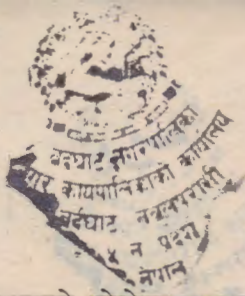 बर्दघाट नगरपालिका
नगर कार्यपालिकाको कार्यालय
बर्दघाट नवलपरासी
४ न प्रदेश
नेपाल